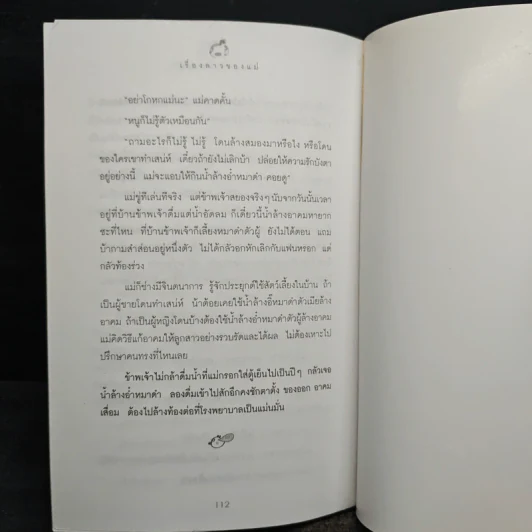 เรื่องราวของแม่
"อย่าโกหกแม่นะ" แม่คาดคั้น
"หนูก็ไม่รู้ตัวเหมือนกัน"
"ถามอะไรก็ไม่รู้ ไม่รู้ โดนล้างสมองมาหรือไง หรือโดน
ของใครเขาทำเสน่ห์ เดี๋ยวถ้ายังไม่เลิกบ้า ปล่อยให้ความรักบังตา
อยู่อย่างนี้ แม่จะแอบให้กินน้ำล้างอ่ำหมาดำ คอยดู"
แม่ขู่ทีเล่นทีจริง แต่ข้าพเจ้าสยองจริงๆ นับจากวันนั้นเวลา
อยู่ที่บ้านข้าพเจ้าดื่มแต่น้ำอัดลม ก็เดี๋ยวนี้น้ำล้างอาคมหายาก
ซะที่ไหน ที่บ้านข้าพเจ้าก็เลี้ยงหมาดำตัวผู้ ยังไม่ได้ตอน แถม
บ้ากามสำส่อนอยู่หนึ่งตัว ไม่ได้กลัวอกหักเลิกกับแฟนหรอก แต่
กลัวท้องร่วง
แม่ก็ช่างมีจินตนาการ รู้จักประยุกต์ใช้สัตว์เลี้ยงในบ้าน ถ้า
เป็นผู้ชายโดนทำเสน่ห์ น้าต้อยเคยใช้น้ำล้างอี๋หมาดำตัวเมียล้าง
อาคม ถ้าเป็นผู้หญิงโดนบ้างต้องใช้น้ำล้างอ่ำหมาดำตัวผู้ล้างอาคม
แม่คิดวิธีแก้อาคมให้ลูกสาวอย่างรวบรัดและได้ผล ไม่ต้องเหาะไป
ปรึกษาคนทรงที่ไหนเลย
ข้าพเจ้าไม่กล้าดื่มน้ำที่แม่กรอกใส่ตู้เย็นไปเป็นปีๆ กลัวเจอ
น้ำล้างอ่ำหมาดำ ลองดื่มเข้าไปสักอึกคงชักตาตั้ง ของออก อาคม
เสื่อม ต้องไปล้างท้องต่อที่โรงพยาบาลเป็นแม่นมั่น
112